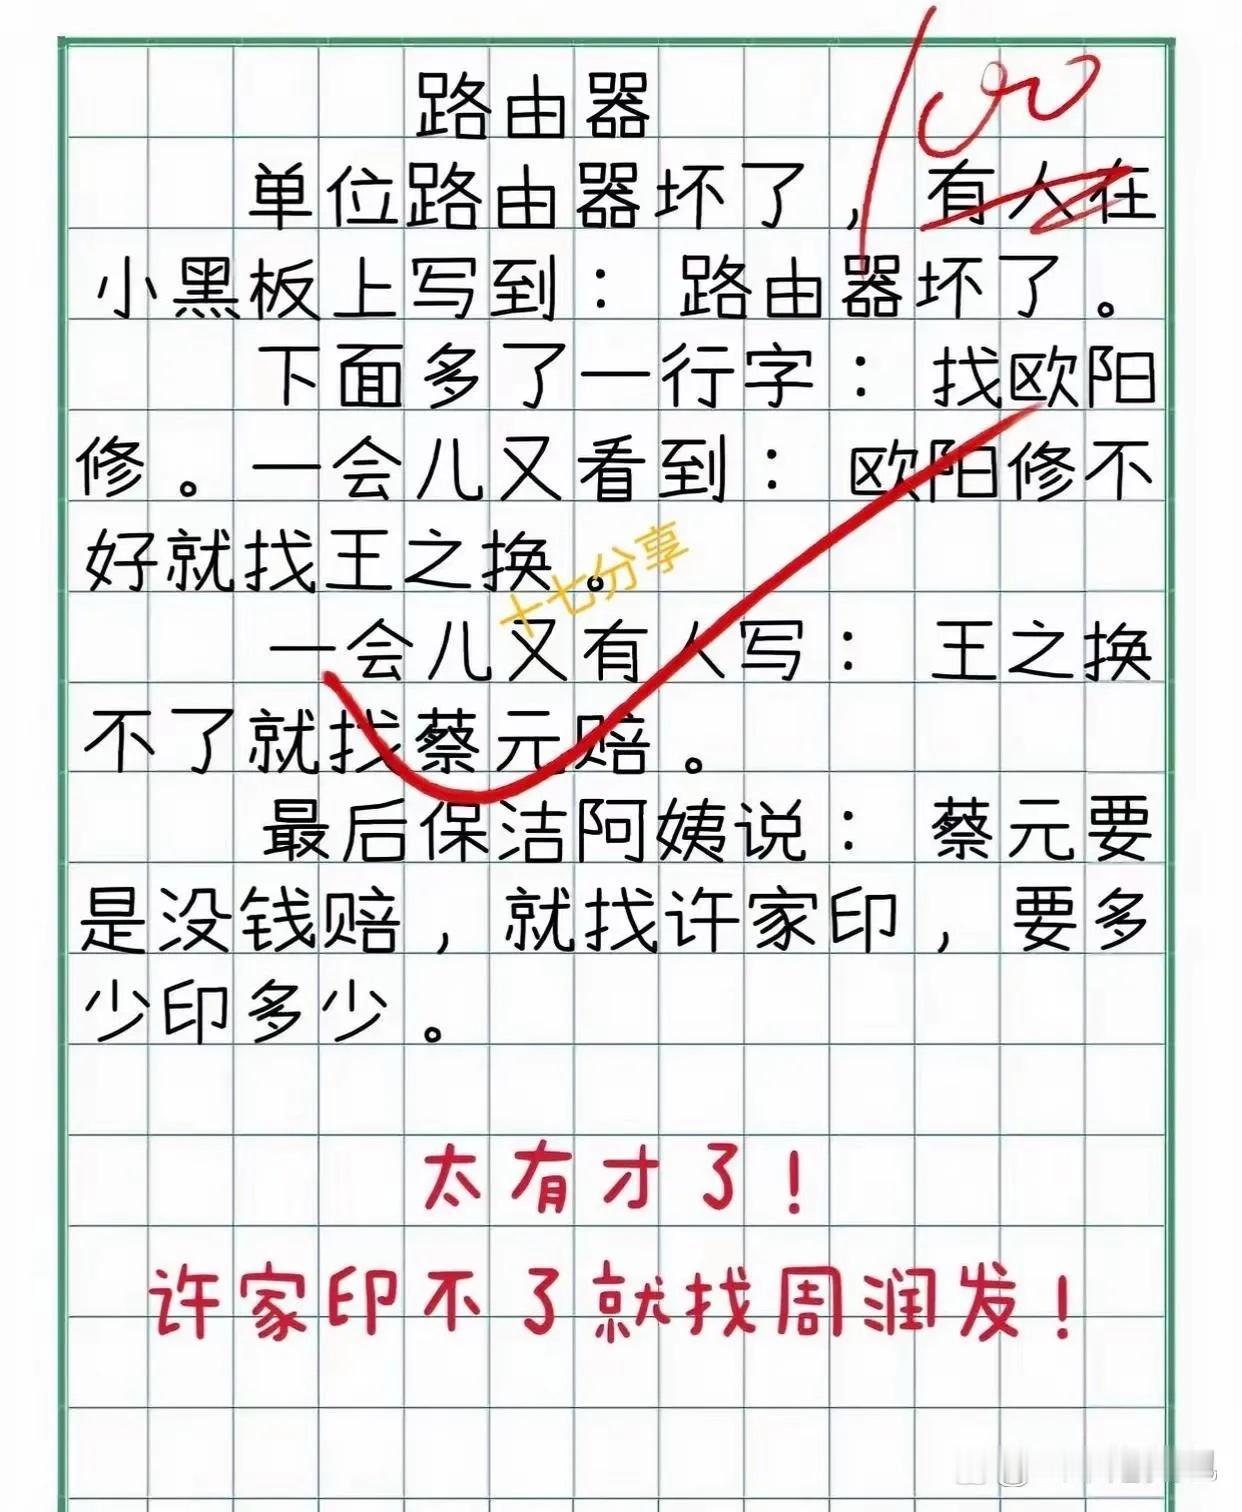 路由器
100
单位路由器坏了，有人在
小黑板上写到：路由器坏了。
下面多了一行字：找欧阳
修。一会儿又看到：欧阳修不
好就找王之换。
十七分享
一会儿又有人写：王之换
不了就找蔡元赔。
最后保洁阿姨说：蔡元要
是没钱赔，就找许家印，要多
少印多少。
太有才了！
许家印不了就找周润发！